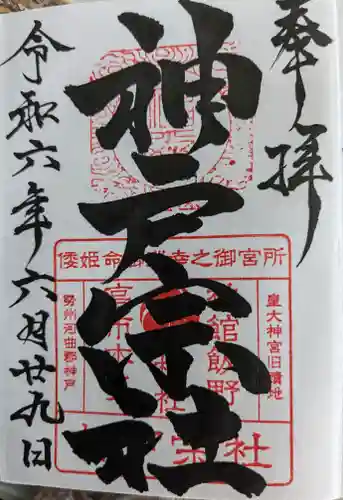 奉拝
神戸宗社
令和六年六月廿九日
倭姫命御幸之御宮所
皇大神宮旧蹟地
館飯野
勢州河曲郡神戸